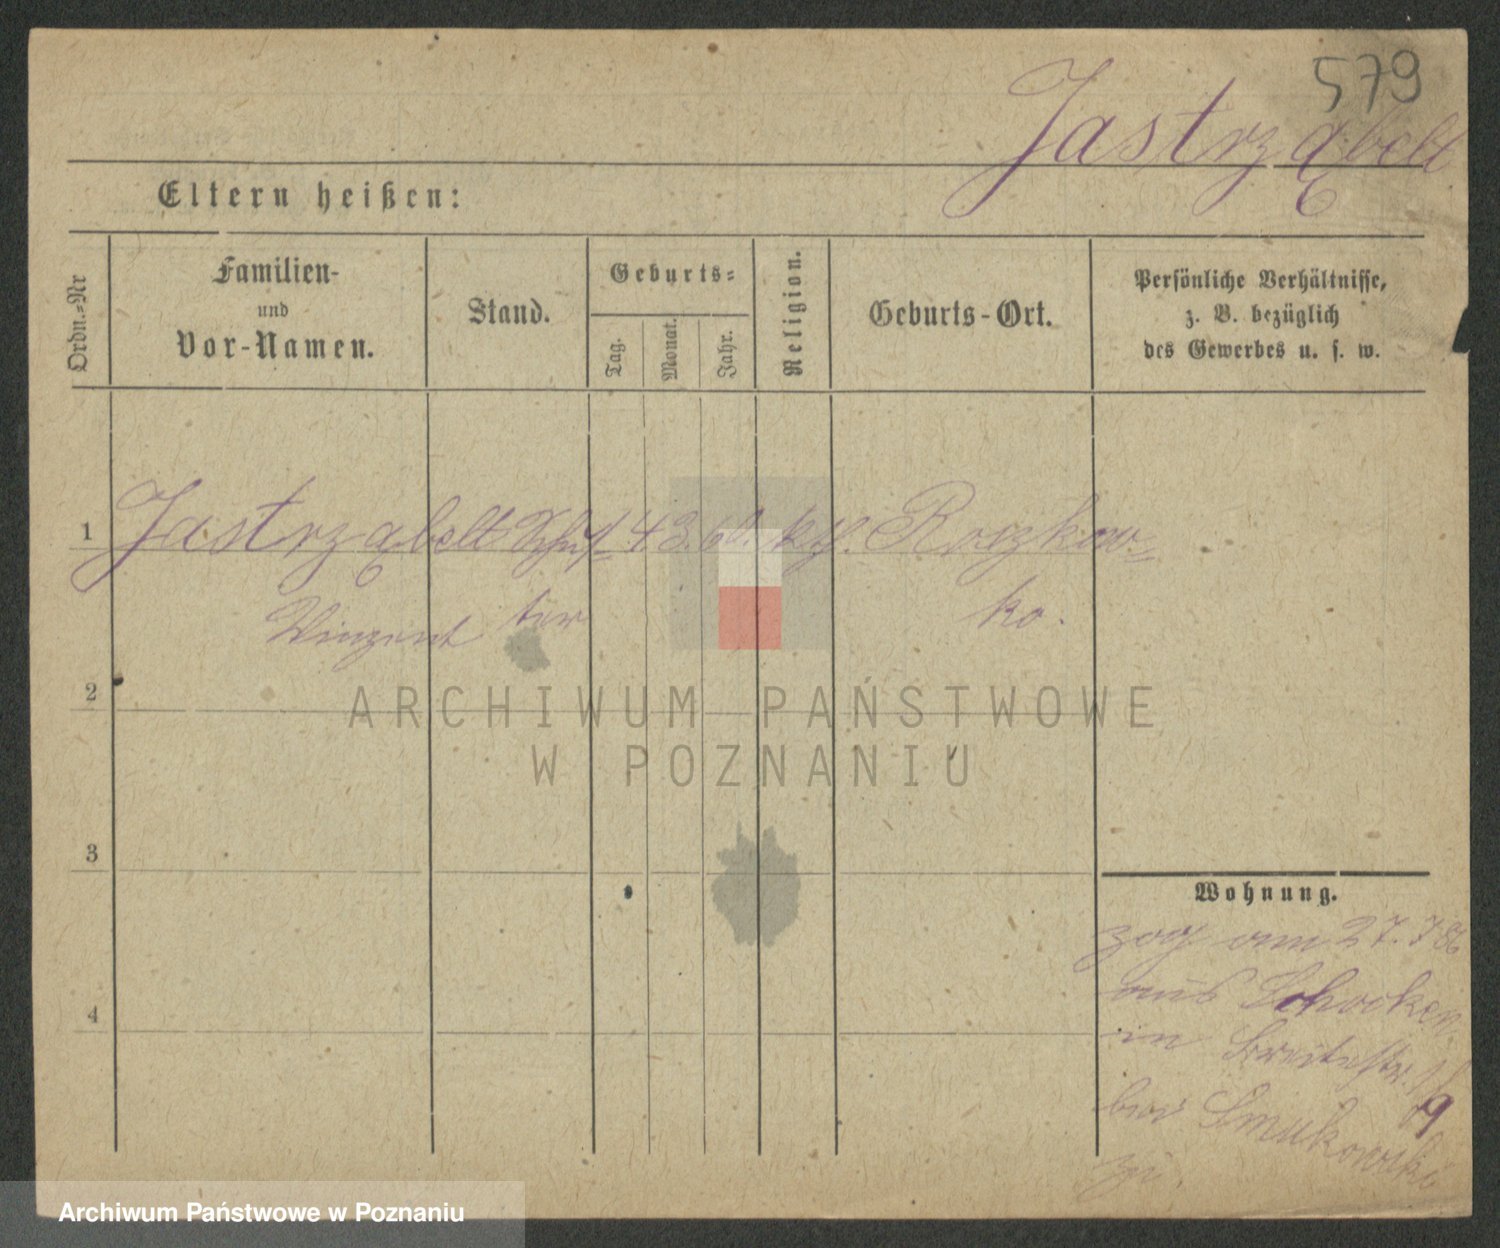 579
Jastrząbelt
Eltern heißen:
Ordn.=Nr
Familien-
und
Vor-Namen.
Stand.
Geburts=
Tag.
Monat.
Jahr.
Religion.
Geburts-Ort.
Persönliche Verhältnisse,
z. B. bezüglich
des Gewerbes u. s. w.
1 Jastrząbelt Schus= 4 3. kth.
Vinzent ter ko.
2
ARCHIWUM PAŃSTWOWE
W POZNANIU
3
4
Wohnung.
zog am 27. 7 86
aus Schocken
in Breitestr. 19
bei Smukowski
zu.
Archiwum Państwowe w Poznaniu